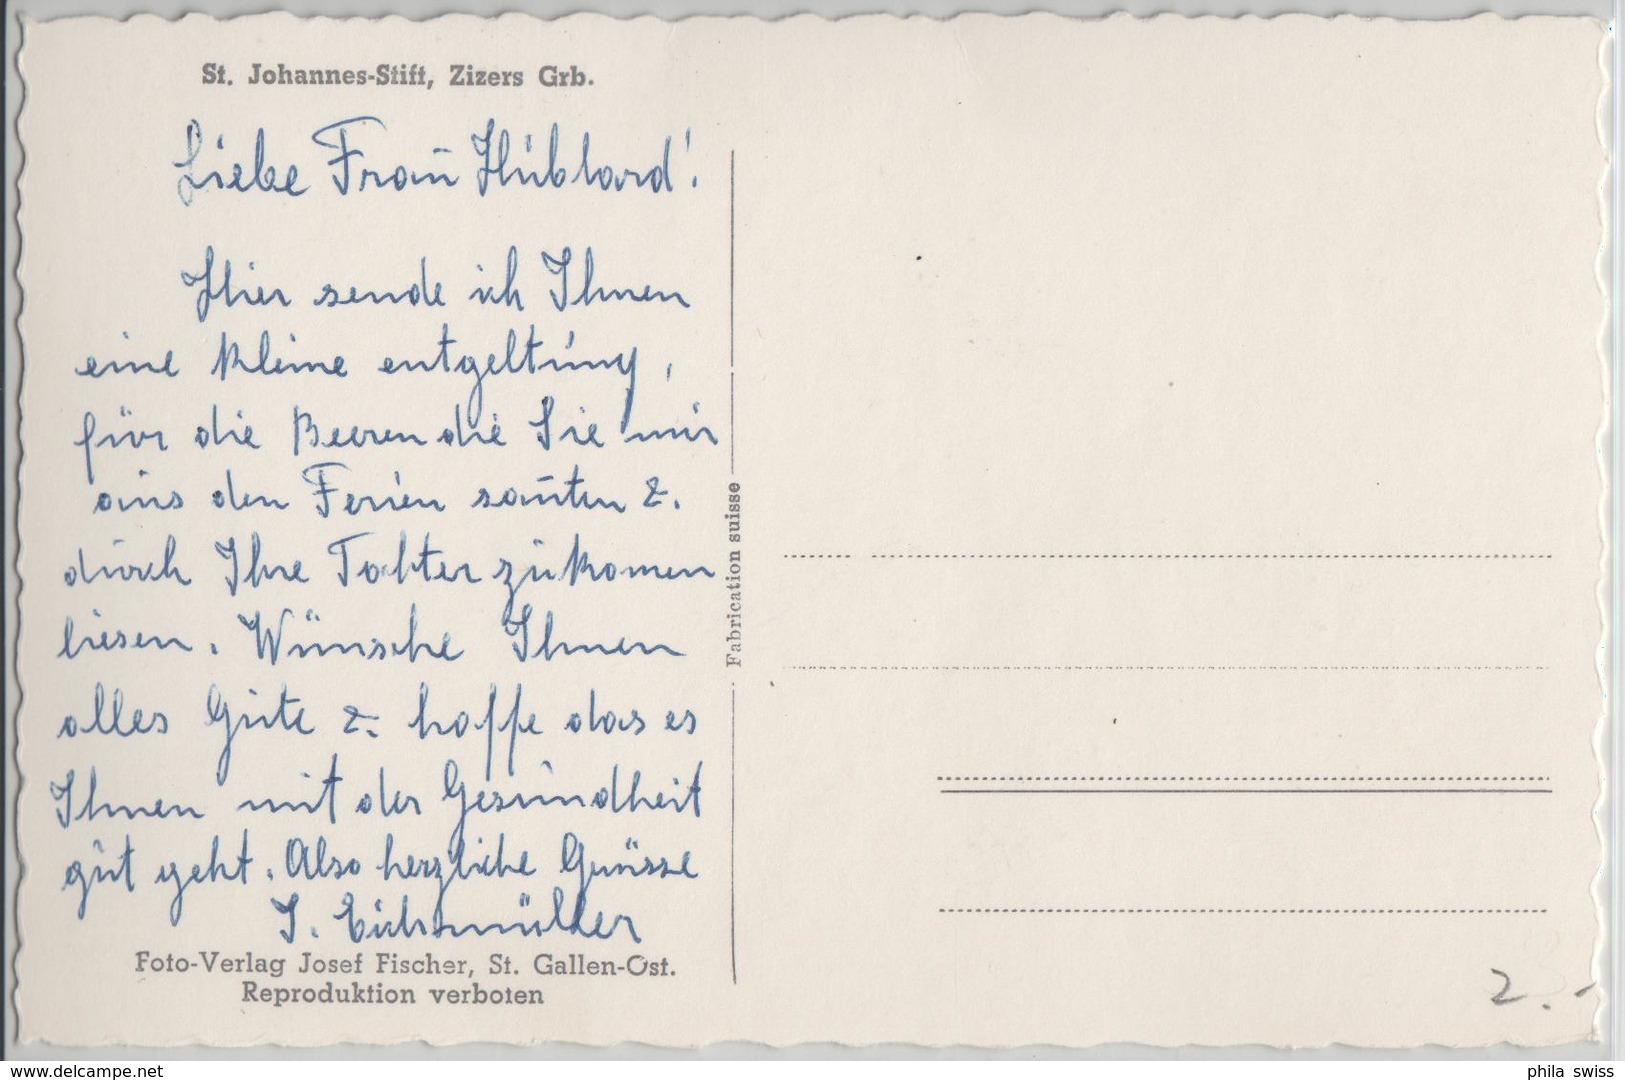 St. Johannes-Stift, Zizers Grb.
Liebe Frau Hüblard!
Hier sende ich Ihnen
eine kleine entgeltung,
für die Beeren die Sie mir
aus den Ferien santen &.
durch Ihre Tochter zukomen
liesen. Wünsche Ihnen
alles Gute &. hoffe das es
Ihnen mit der Gesundheit
gut geht. Also herzliche Grüsse
J.
Foto-Verlag Josef Fischer, St. Gallen-Ost.
Reproduktion verboten
Fabrication suisse
2.-
delcampe.net
phila swiss